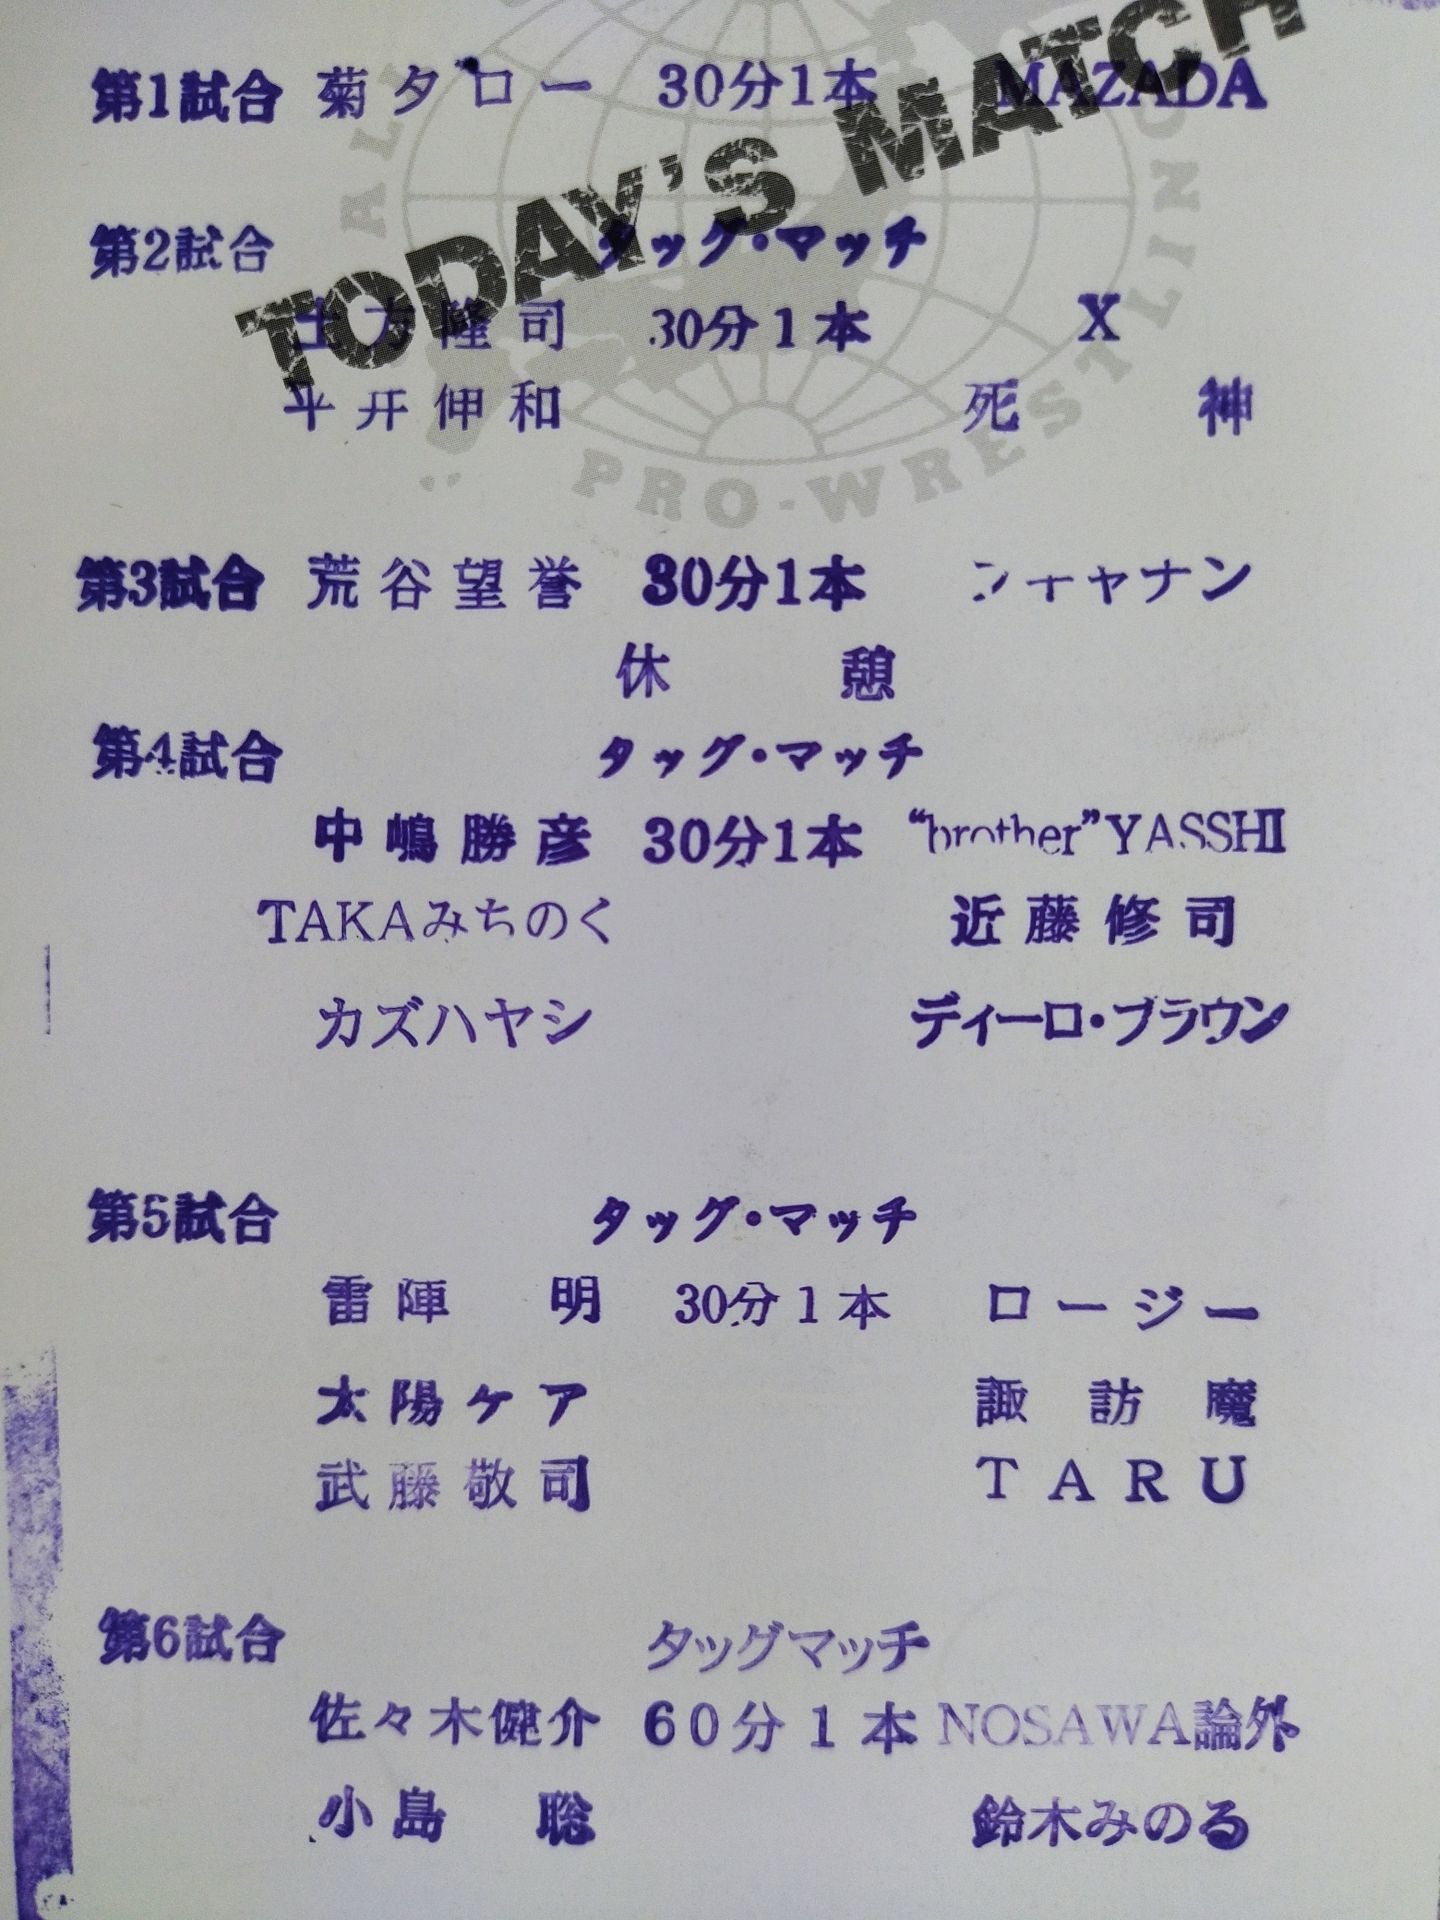 TODAY'S MATCH
ALL
PRO-WRESTLING
第1試合 菊タロー 30分1本 MAZADA
第2試合 タッグ・マッチ
土方隆司 30分1本 X
平井伸和 死神
第3試合 荒谷望誉 30分1本 ブキャナン
休憩
第4試合 タッグ・マッチ
中嶋勝彦 30分1本 “brother”YASSHI
TAKAみちのく 近藤修司
カズハヤシ ディーロ・ブラウン
第5試合 タッグ・マッチ
雷陣 明 30分1本 ロージー
太陽ケア 諏訪魔
武藤敬司 TARU
第6試合 タッグマッチ
佐々木健介 60分1本 NOSAWA論外
小島 聡 鈴木みのる